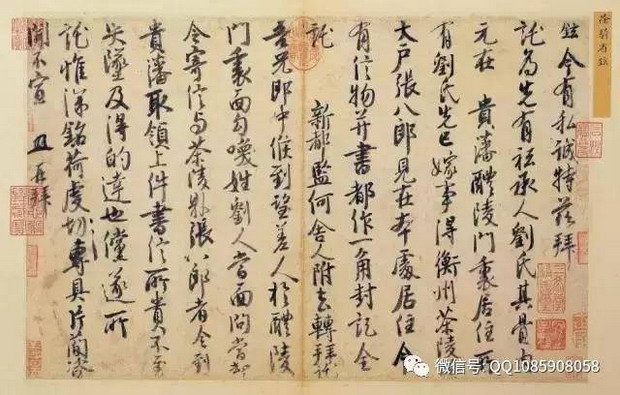 徐騎省鉉
鉉今有私誠特茲拜
託為先有祗承人劉氏其骨肉
元在 貴藩醴陵門裏居住所
有劉氏先已嫁事得衡州茶陵
大戶張八郎見在本處居住今
有信物并書都作一角封記全
託 新都監何舍人附去轉拜託
吾兄郎中候到望差人於醴陵
門裏面勾喚姓劉人當面問當却
令寄信与茶陵縣張八郎者令到
貴藩取領上件書信所貴不至
失墜及得的達也儻遂所
託惟深銘荷虔切專具片簡咨
聞不宣 再拜
微信号: QQ1085908058